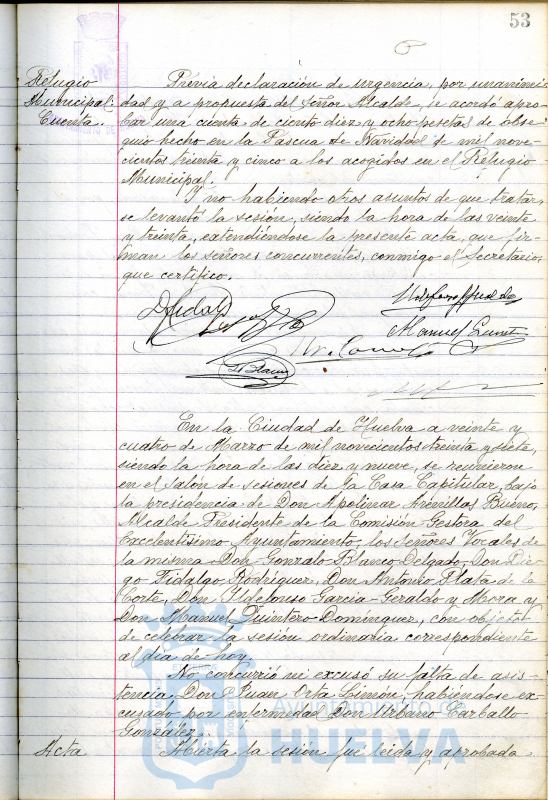 53
Refugio
Municipal.
Cuenta.
Prévia declaración de urgencia, por unanimi-
dad y a propuesta del Señor Alcalde, se acordó apro-
bar una cuenta de ciento diez y ocho pesetas de obse-
quio hecho en la Pascua de Navidad de mil nove-
cientos treinta y cinco a los acogidos en el Refugio
Municipal.
Y no habiendo otros asuntos de que tratar,
se levantó la sesión, siendo la hora de las veinte
y treinta, extendiéndose la presente acta, que fir-
man los señores concurrentes, conmigo el Secretario
que certifico.
En la Ciudad de Huelva a veinte y
cuatro de Marzo de mil novecientos treinta y siete,
siendo la hora de las diez y nueve, se reunieron
en el Salon de Sesiones de la Casa Capitular, bajo
la presidencia de Don Apolinar Arenillas Bueno,
Alcalde Presidente de la Comisión Gestora del
Excelentísimo Ayuntamiento, los Señores Vocales de
la misma Don Gonzalo Blanco Delgado, Don Die-
go Fidalgo Rodriguez, Don Antonio Plata de la
Corte, Don Ildefonso Garcia-Geraldo y Mora y
Don Manuel Quintero Domínguez, con objeto
de celebrar la sesión ordinaria correspondiente
al dia de hoy.
No concurrió ni excusó su falta de asis-
tencia Don Juan Orta Limón, habiéndose ex-
cusado por enfermedad Don Urbano Carballo
González.
Ayuntamiento de
HUELVA
Acta Abierta la sesión fué leida y aprobada